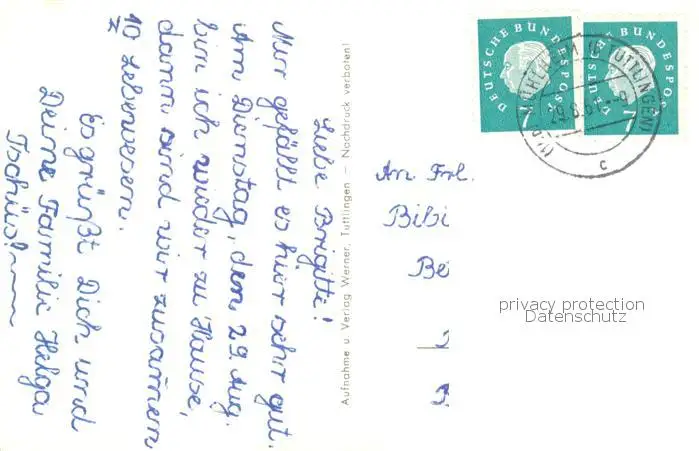 Liebe Brigitte!
Mir gefällt es hier sehr gut.
Am Dienstag, den 29. Aug.
bin ich wieder zu Hause,
dann sind wir zusammen
10 Lebewesen.
Es grüßt Dich und
Deine Familie Helga
Tschüs!
Aufnahme u. Verlag Werner, Tuttlingen – Nachdruck verboten!
DEUTSCHE BUNDESPOST
7
DEUTSCHE BUNDESPOS
7
MÜHLHEIM (TUTTLINGEN)
c
An Frl.
Bibi
Be
privacy protection
Datenschutz